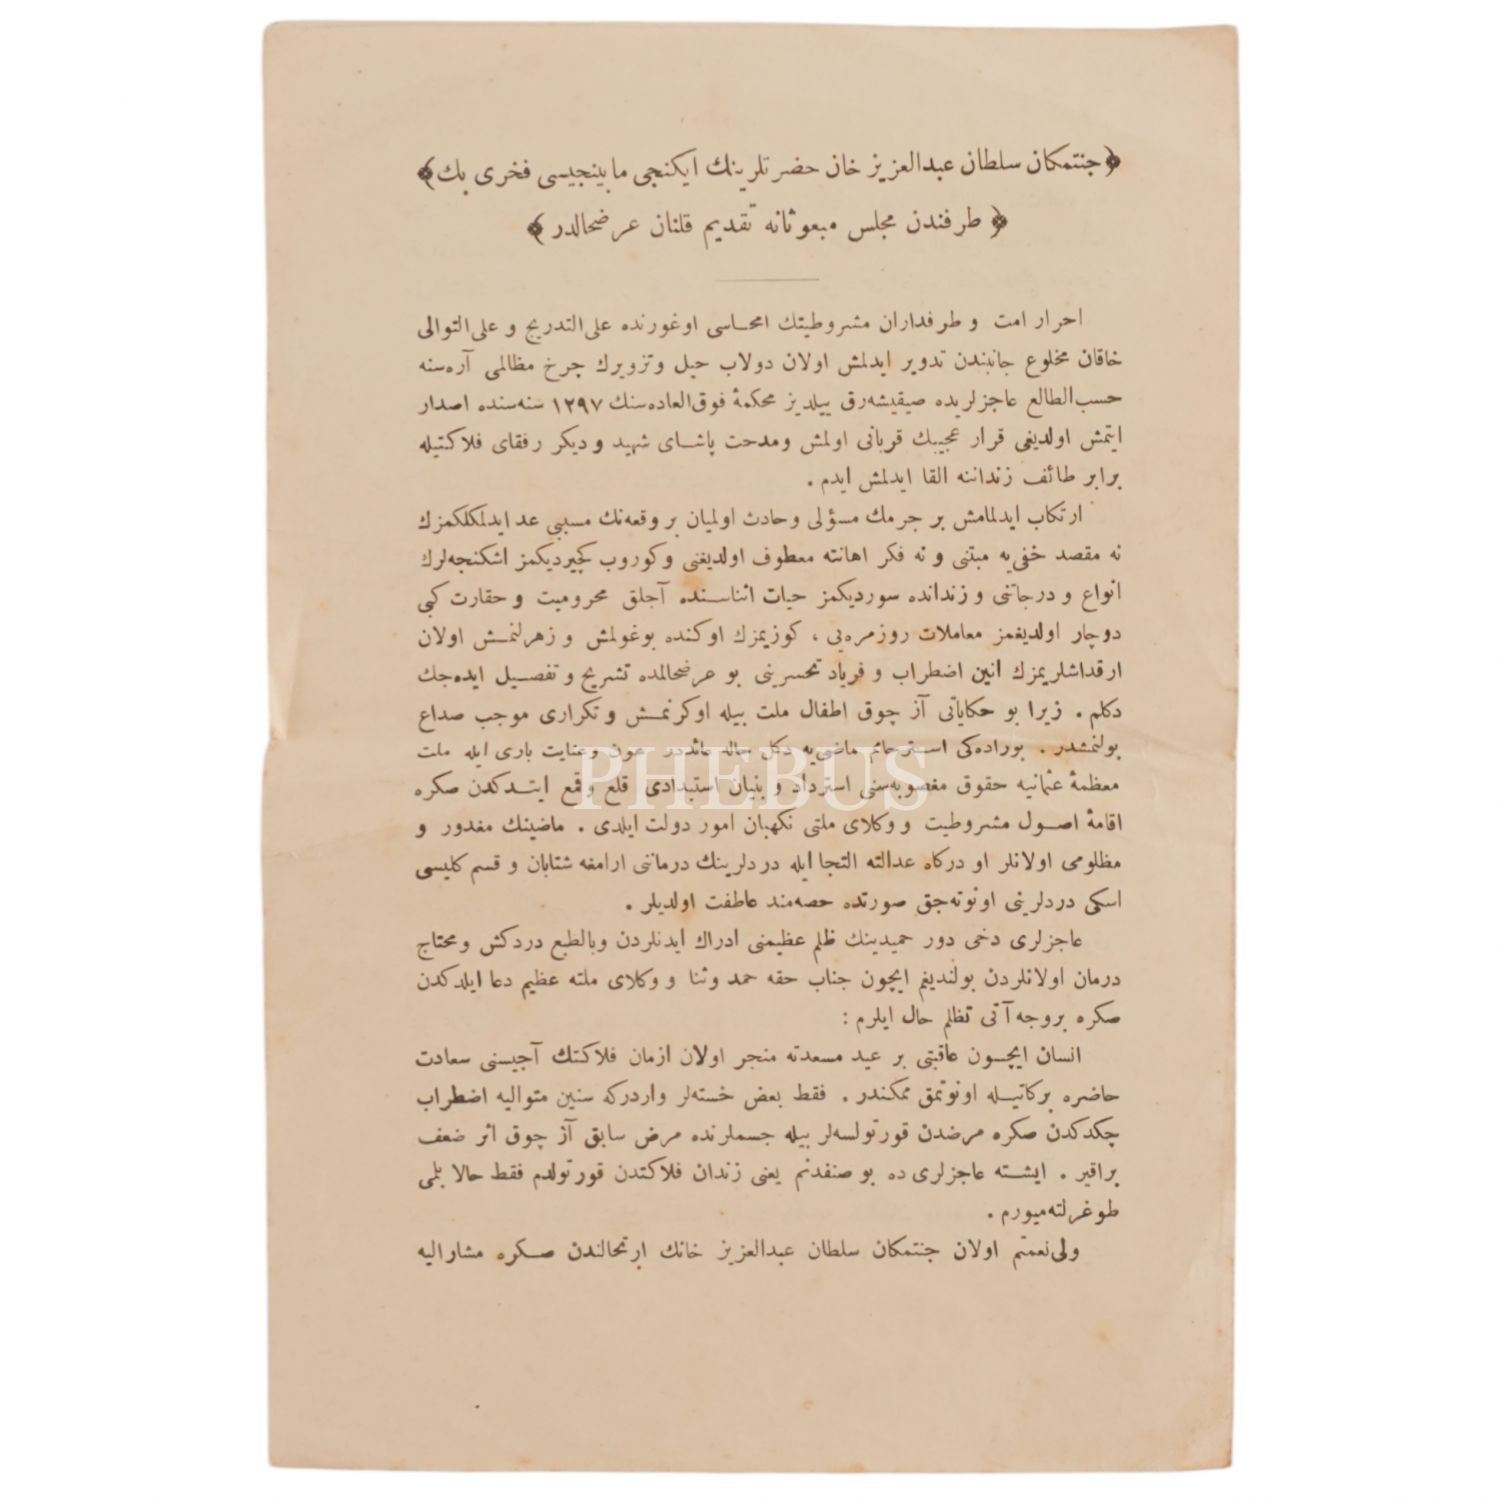 ﴿ جنتمكان سلطان عبدالعزيز خان حضرتلرينك ايكنجى مابينجيسى فخرى بك ﴾
﴿ طرفندن مجلس مبعوثانه تقديم قلنان عرضحالدر ﴾
احرار امت و طرفداران مشروطيتك امحاسى اوغورنده على‌التدريج و على‌التوالى
خاقان مخلوع جانبندن تدوير ايدلمش اولان دولاب حيل وتزويرك چرخ مظالمى آره‌سنه
حسب‌الطالع عاجزلريده صيقيشه‌رق ييلديز محكمهٔ فوق‌العاده‌سنك ١٢٩٧ سنه‌سنده اصدار
ايتمش اولديغى قرار عجيبك قربانى اولمش ومدحت پاشاى شهيد و ديكر رفقاى فلاكتيله
برابر طائف زنداننه القا ايدلمش ايدم .
ارتكاب ايدلمامش بر جرمك مسؤلى وحادث اولميان بر وقعه‌نك مسببى عد ايدلمكلكمزك
نه مقصد خفى‌يه مبتنى و نه فكر اهانته معطوف اولديغنى و كوروب كچيرديكمز اشكنجه‌لرك
انواع و درجاتنى و زندانده سورديكمز حيات اثناسنده آجلق محروميت و حقارت كبى
دوچار اولديغمز معاملات روزمره‌يى ، كوزيمزك اوكنده بوغولمش و زهرلنمش اولان
ارقداشلريمزك انين اضطراب و فرياد تحسرينى بو عرضحالمده تشريح و تفصيل ايده‌جك
دكلم . زيرا بو حكاياتى آز چوق اطفال ملت بيله اوكرنمش و تكرارى موجب صداع
بولنمشدر . بوراده‌كى استرحام ماضى‌يه دكل حاله عائددر عون وعنايت بارى ايله ملت
معظمهٔ عثمانيه حقوق مغصوبه‌سنى استرداد و بنيان استبدادى قلع وقمع ايتدكدن صكره
اقامهٔ اصول مشروطيت و وكلاى ملتى نكهبان امور دولت ايلدى . ماضينك مغدور و
مظلومى اولانلر او دركاه عدالته التجا ايله دردلرينك درماننى ارامغه شتابان و قسم كليسى
اسكى دردلرينى اونوته‌جق صورتده حصه‌مند عاطفت اولديلر .
عاجزلرى دخى دور حميدينك ظلم عظيمنى ادراك ايدنلردن وبالطبع دردكش ومحتاج
درمان اولانلردن بولنديغم ايچون جناب حقه حمد وثنا و وكلاى ملته عظيم دعا ايلدكدن
صكره بروجه آتى تظلم حال ايلرم :
انسان ايچون عاقبتى بر عيد مسعدته منجر اولان ازمان فلاكتك آجيسنى سعادت
حاضره بركاتيله اونوتمق ممكندر . فقط بعض خسته‌لر واردركه سنين متواليه اضطراب
چكدكدن صكره مرضدن قورتولسه‌لر بيله جسملرنده مرض سابق آز چوق اثر ضعف
براقير . ايشته عاجزلرى ده بو صنفدنم يعنى زندان فلاكتدن قورتولدم فقط حالا بلمى
طوغرلته‌ميورم .
ولى‌نعمتم اولان جنتمكان سلطان عبدالعزيز خانك ارتحالندن صكره مشاراليه
PHEBUS